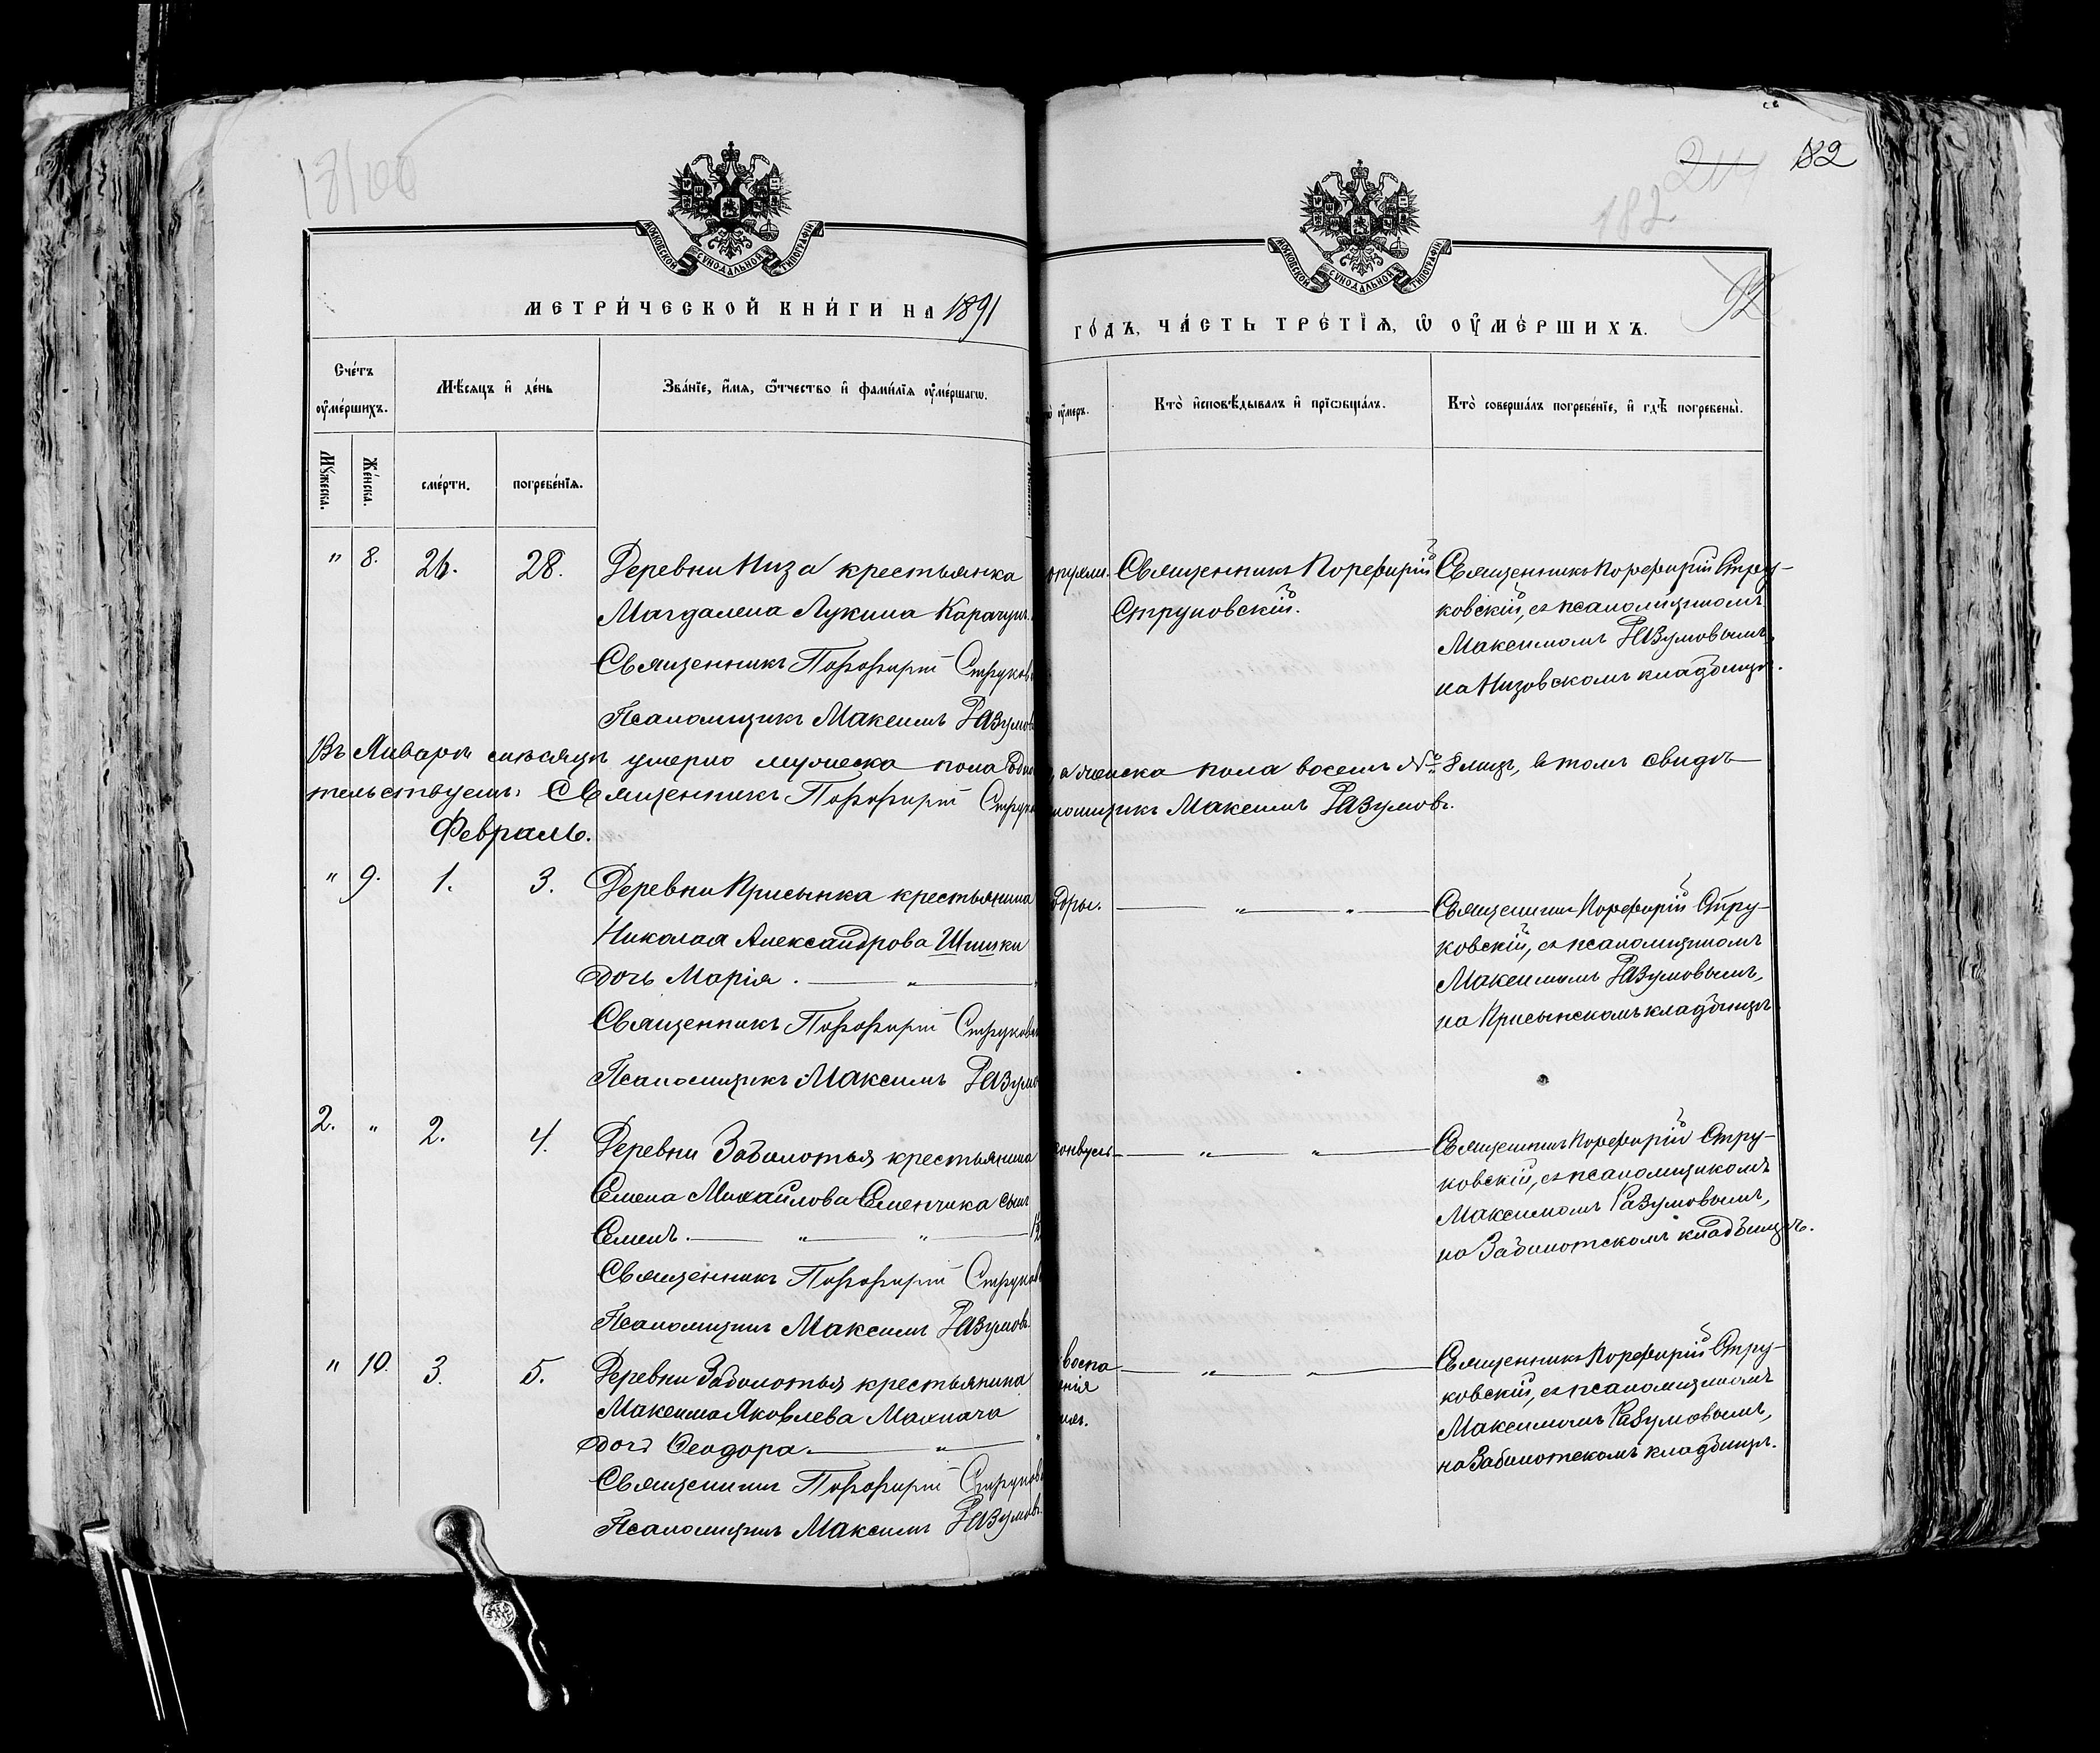 182
МОСКОВСКОЙ СѴНОДАЛЬНОЙ ТИПОГРАФІИ
МОСКОВСКОЙ СѴНОДАЛЬНОЙ ТИПОГРАФІИ
182
МЕТРИ́ЧЕСКОЙ КНИ́ГИ НА 1891
ГО́ДЪ, ЧА́СТЬ ТРЕ́ТЇѦ, Ѡ҆ ОУ҆МЕ́РШИХЪ.
92
Сче́тъ оу҆ме́ршихъ.
Мѣ́сяцъ и҆ де́нь
Зва́нїе, и҆́мѧ, ѻ҆́тчество и҆ фами́лїѧ оу҆ме́ршагѡ.
оу҆́меръ.
Кто̀ и҆сповѣ́дывалъ и҆ прїѡбща́лъ.
Кто̀ соверша́лъ погребе́нїе, и҆ гдѣ̀ погребены̀.
Мꙋ́жеска.
Же́нска.
сме́рти.
погребе́нїѧ.
" 8. 26. 28. Деревни Низа крестьянка
Магдалена Лукина Карачун
Священникъ Порфирій Струков
Псаломщикъ Максимъ Разумов
Священникъ Порфирій
Струковскій.
Священникъ Порфирій Стру-
ковскій, съ псаломщикомъ
Максимомъ Разумовымъ,
на Низовскомъ кладбищѣ.
Въ Январѣ мѣсяцѣ умерло мужеска пола а женска пола восемь № 8 лицъ, въ томъ свидѣ-
тельствуемъ: Священникъ Порфирій Струко Максимъ Разумовъ.
Февраль.
" 9. 1. 3. Деревни Присынка крестьянина
Николая Александрова Шишки
дочь Марія. — " —
Священникъ Порфирій Струков
Псаломщикъ Максимъ Разумо
— " — " —
Священникъ Порфирій Стру-
ковскій, съ псаломщикомъ
Максимомъ Разумовымъ,
на Присынскомъ кладбищѣ.
2. " 2. 4. Деревни Заболотья крестьянина
Семена Михайлова Семенчика сынъ
Семенъ. — " — " —
Священникъ Порфирій Струков
Псаломщикъ Максимъ Разумовъ.
— " — " —
Священникъ Порфирій Стру-
ковскій, съ псаломщикомъ
Максимомъ Разумовымъ,
на Заболотскомъ кладбищѣ.
" 10. 3. 5. Деревни Заболотья крестьянина
Максима Яковлева Махнача
дочь Ѳеодора. — " —
Священникъ Порфирій Струков
Псаломщикъ Максимъ Разумовъ.
воспа
енія
— " — " —
Священникъ Порфирій Стру-
ковскій, съ псаломщикомъ
Максимомъ Разумовымъ,
на Заболотскомъ кладбищѣ.